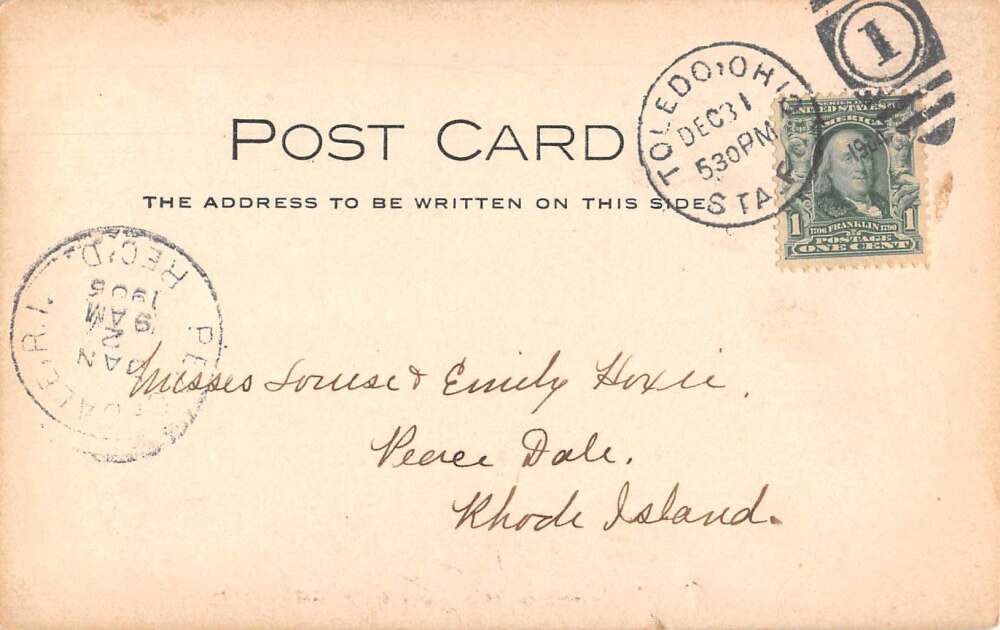 POST CARD
THE ADDRESS TO BE WRITTEN ON THIS SIDE
TOLEDO, OHIO
DEC 31
530PM
STA.
1
SERIES
UNITED STATES OF
AMERICA
1 1
1706 FRANKLIN 1790
POSTAGE
ONE CENT
PE DALE, R.I.
JAN
9 AM
1905
REC'D.
Misses Louise & Emily Hoxie.
Peace Dale.
Rhode Island.